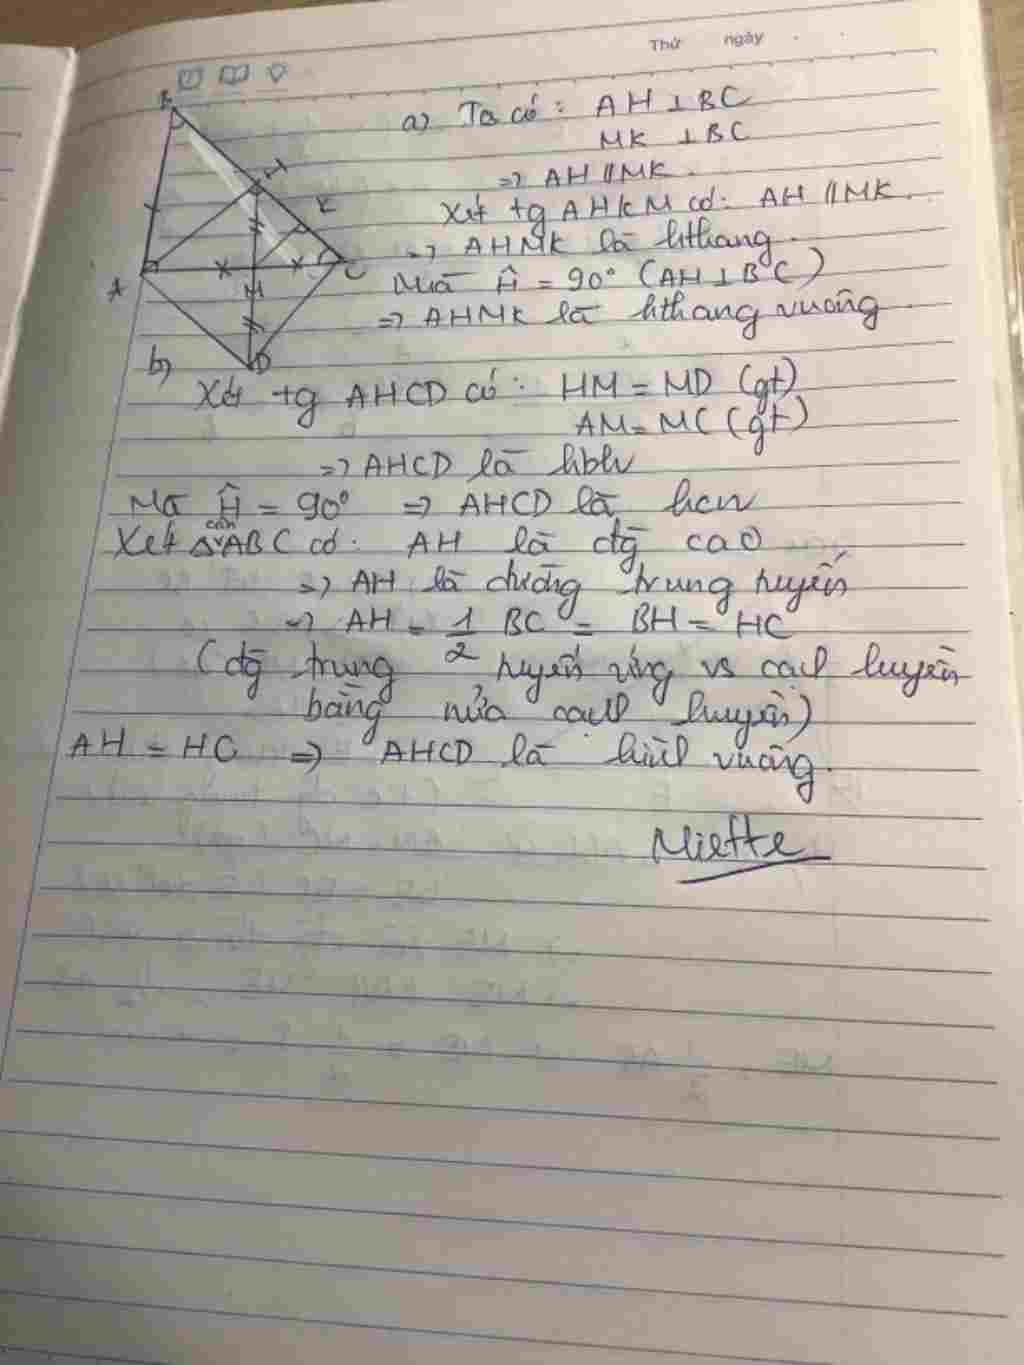 Thứ ngày
B
H
K
A
M
C
D
a) Ta có: AH ⊥ BC
MK ⊥ BC
=> AH // MK.
Xét tg AHKM có: AH // MK.
=> AHMK là hthang.
Mà Ĥ = 90° (AH ⊥ BC)
=> AHMK là hthang vuông
b)
Xét tg AHCD có: HM = MD (gt)
AM = MC (gt)
=> AHCD là hbh
Mà Ĥ = 90° => AHCD là hcn
Xét Δv cân ABC có: AH là đg cao
=> AH là đường trung tuyến
=> AH = 1/2 BC = BH = HC
(đg trung tuyến ứng vs cạnh huyền
bằng nửa cạnh huyền)
AH = HC => AHCD là hình vuông.
Miette